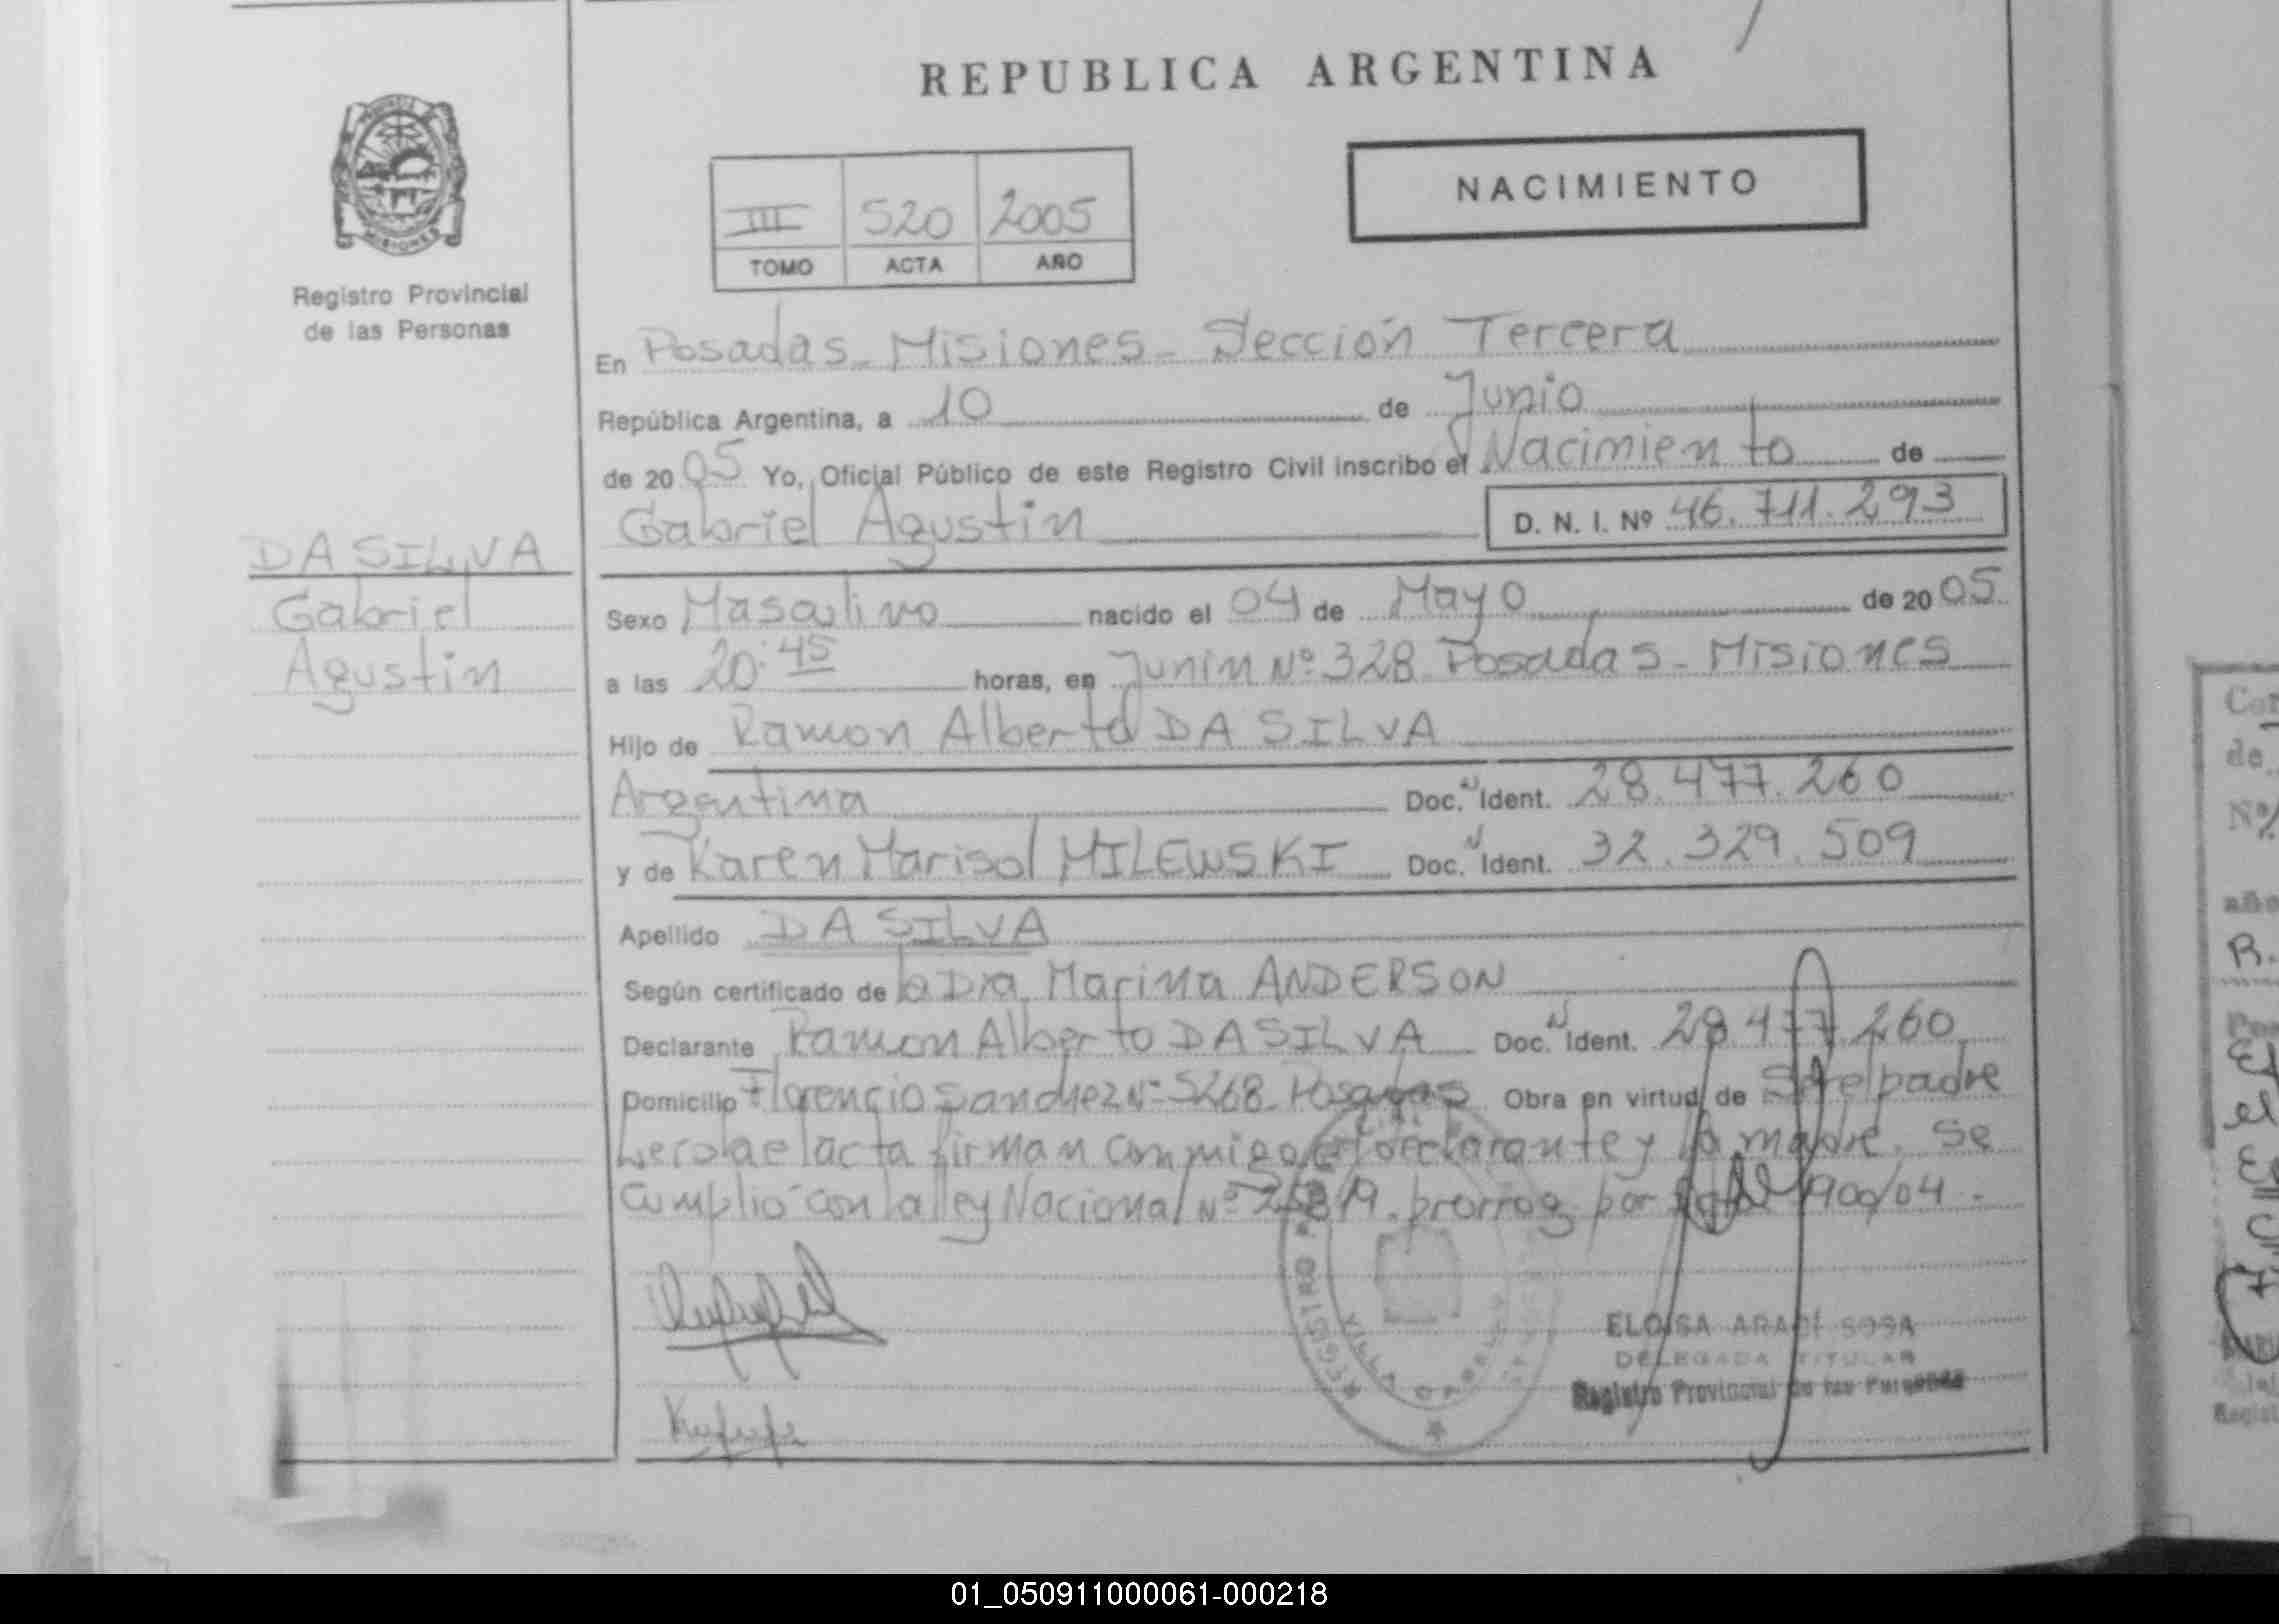 REPUBLICA ARGENTINA
PROVINCIA
MISIONES
Registro Provincial
de las Personas
III 520 2005
TOMO ACTA AÑO
NACIMIENTO
En Posadas - Misiones - Sección Tercera
República Argentina, a 10 de Junio
de 2005 Yo, Oficial Público de este Registro Civil inscribo el Nacimiento de
Gabriel Agustin D. N. I. Nº 46.711.293
DA SILVA
Gabriel
Agustin
Sexo Masculino nacido el 04 de Mayo de 2005
a las 20:45 horas, en Junin Nº 328 Posadas - Misiones
Hijo de Ramon Alberto DA SILVA
Argentina Doc. Ident. 28.477.260
y de Karen Marisol MILEWSKI Doc. Ident. 32.329.509
Apellido DA SILVA
Según certificado de la Dra. Marina ANDERSON
Declarante Ramon Alberto DA SILVA Doc. Ident. 28.477.260
Domicilio Florencio Sanchez Nº 5268 Posadas Obra en virtud de Ser el padre
Leida el acta firman conmigo el declarante y la madre. Se
cumplió con la ley Nacional Nº prorrog. por 1900/04.
REGISTRO
VILLA CABELLO
ELOISA ARACÍ SOSA
DELEGADA TITULAR
Registro Provincial de las Personas
01_050911000061-000218